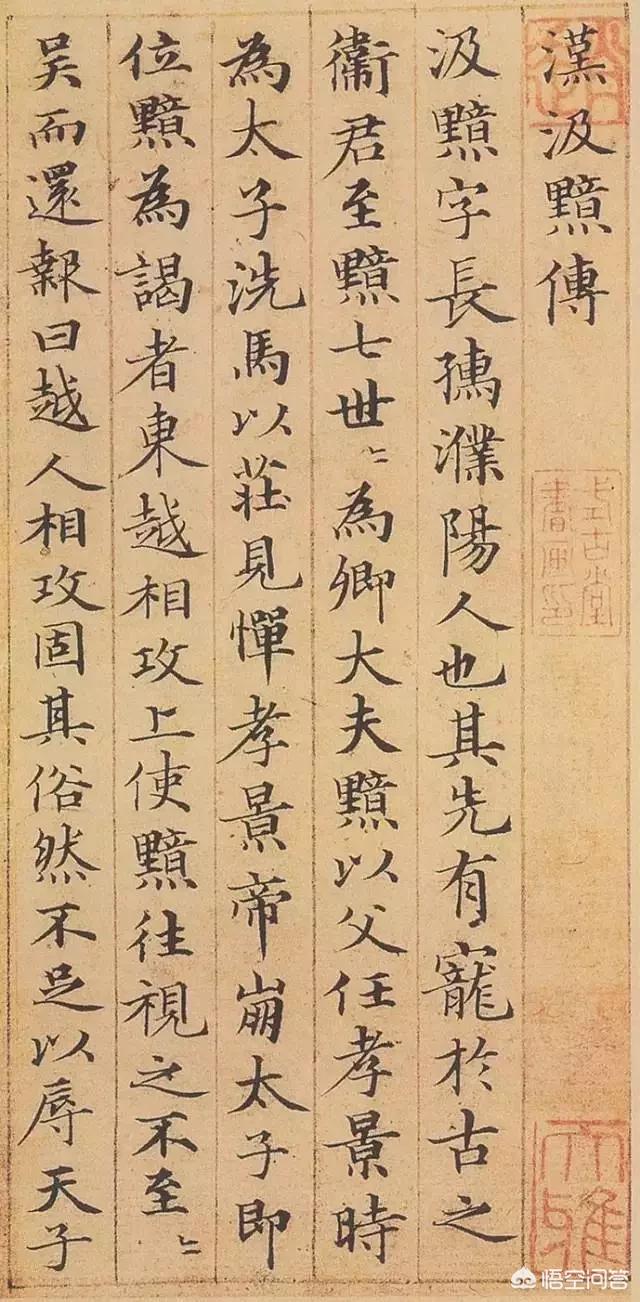 漢汲黯傳
汲黯字長孺濮陽人也其先有寵於古之
衛君至黯七世〻為卿大夫黯以父任孝景時
為太子洗馬以莊見憚孝景帝崩太子即
位黯為謁者東越相攻上使黯往視之不至〻
吳而還報曰越人相攻固其俗然不足以辱天子
悟空问答